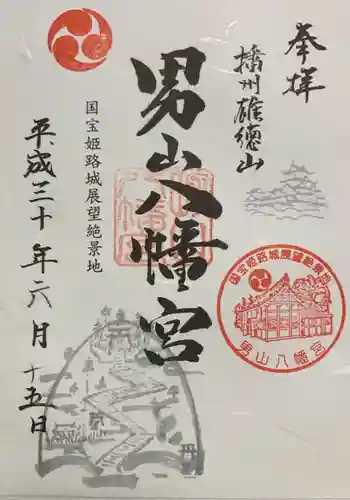 奉拝
播州雄徳山
男山八幡宮
国宝姫路城展望絶景地
平成三十年六月十五日
国宝姫路城展望絶景地
男山八幡宮